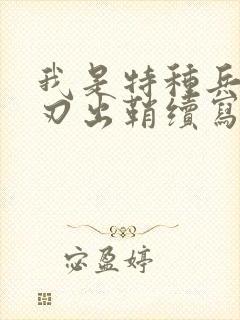 我是特種兵
刃出鞘續寫
宓盈婷